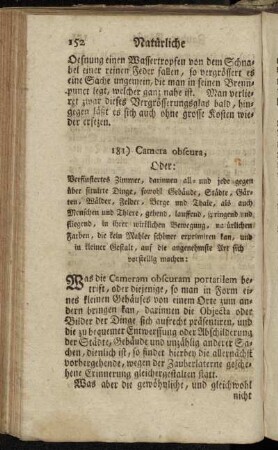 152 Natürliche
Oefnung einen Wassertropfen von dem Schna-
bel einer reinen Feder fallen, so vergrössert es
eine Sache ungemein, die man in seinen Brenn-
punct legt, welcher ganz nahe ist. Man verlie-
ret zwar dieses Vergrösserungsglas bald, hin-
gegen läßt es sich auch ohne grosse Kosten wie-
der ersetzen.
181) Camera obscura,
Oder:
Verfinstertes Zimmer, darinnen all- und jede gegen
über situirte Dinge, sowohl Gebäude, Städte, Gär-
ten, Wälder, Felder, Berge und Thale, als auch
Menschen und Thiere, gehend, lauffend, springend und
fliegend, in ihrer wirklichen Bewegung, natürlichen
Farben, die kein Mahler schöner exprimiren kan, und
in kleiner Gestalt, auf die angenehmste Art sich
vorstellig machen:
Was die Cameram obscuram portatilem be-
trift, oder diejenige, so man in Form ei-
nes kleinen Gehäuses von einem Orte zum an-
dern bringen kan, darinnen die Objecta oder
Bilder der Dinge sich aufrecht präsentiren, und
die zu bequemer Entwerffung oder Abschilderung
der Städte, Gebäude und unzählig anderer Sa-
chen, dienlich ist, so findet hierbey die allernächst
vorhergehende, wegen der Zauberlaterne gesche-
hene Erinnerung gleichergestalten statt.
Was aber die gewöhnliche, und gleichwohl
nicht